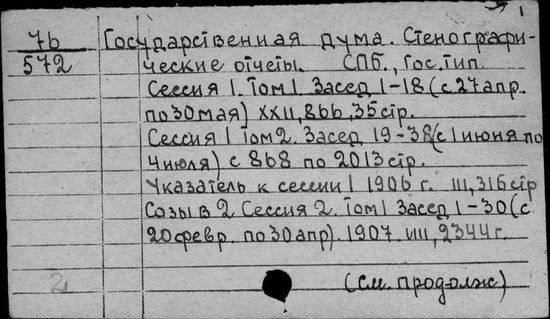 1
7б Государственная дума. Стенографи-
572 ческие отчеты. СПб., Гос. тип.
Сессия 1. Том 1. Засед 1-18 (с 27 апр.
по 30 мая) XXII, 866, 35 стр.
Сессия 1 Том 2. Засед 19-38 (с 1 июня по
4 июля) с 868 по 2013 стр.
Указатель к сессии 1 1906 г. III, 316 стр
Созыв 2 Сессия 2. Том 1 Засед 1-30 (с
20 февр. по 30 апр). 1907 VIII, 2344 г.
2 (см. продолж)